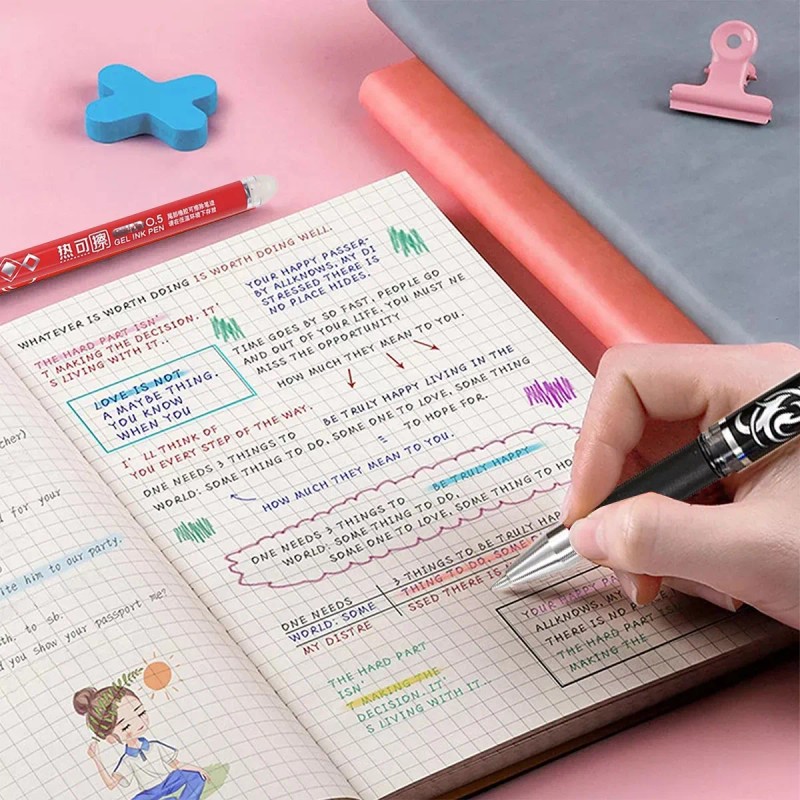 热可擦 0.5
GEL INK PEN
cher)
d for your
ite him to our party.
th. to sb.
d you show your passport me?
WHATEVER IS WORTH DOING IS WORTH DOING WELL.
THE HARD PART ISN'
T MAKING THE DECISION. IT'
S LIVING WITH IT..
YOUR HAPPY PASSER-
BY ALLKNOWS, MY DI
STRESSED THERE IS
NO PLACE HIDES.
TIME GOES BY SO FAST, PEOPLE GO
AND OUT OF YOUR LIFE. YOU MUST NE
MISS THE OPPORTUNITY
HOW MUCH THEY MEAN TO YOU.
LOVE IS NOT
A MAYBE THING.
YOU KNOW
WHEN YOU
BE TRULY HAPPY LIVING IN THE
I' LL THINK OF
YOU EVERY STEP OF THE WAY.
ONE NEEDS 3 THINGS TO
WORLD: SOME THING TO DO, SOME ONE TO LOVE, SOME THING
TO HOPE FOR.
=
HOW MUCH THEY MEAN TO YOU.
BE TRULY HAPPY
ONE NEEDS 3 THINGS TO
WORLD: SOME THING TO DO,
SOME ONE TO LOVE, SOME THING TO HO
3 THINGS TO BE TRULY HAP
THING TO DO, SOME O
SSED THERE IS
ONE NEEDS
WORLD: SOME
MY DISTRE
YOUR HAPPY PA
ALLKNOWS, MY
THERE IS NO PLACE
THE HARD PART ISN'
MAKING THE
THE HARD PART
ISN'
T MAKING THE
DECISION. IT'
S LIVING WITH IT..